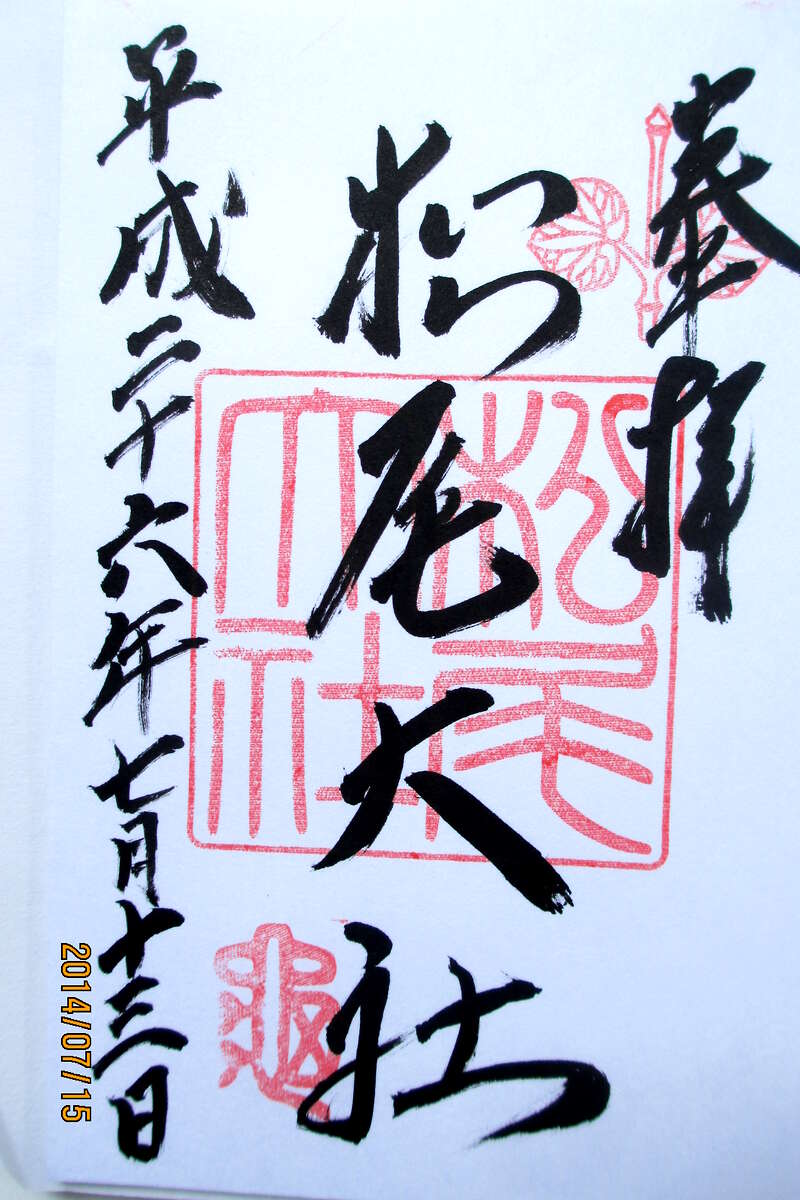 奉拝
松尾大社
松尾大社
平成二十六年七月十三日
亀
2014/07/15